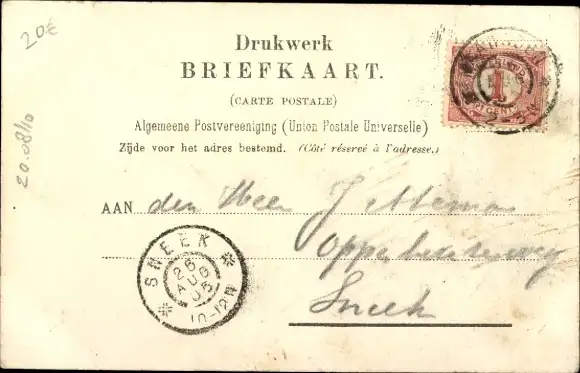 20€
20.08/10
Drukwerk
BRIEFKAART.
(CARTE POSTALE)
Algemeene Postvereeniging (Union Postale Universelle)
Zijde voor het adres bestemd. (Côté réservé à l'adresse.)
1
AAN den Heer J
Sneek
SNEEK
26
AUG
05
10-12N